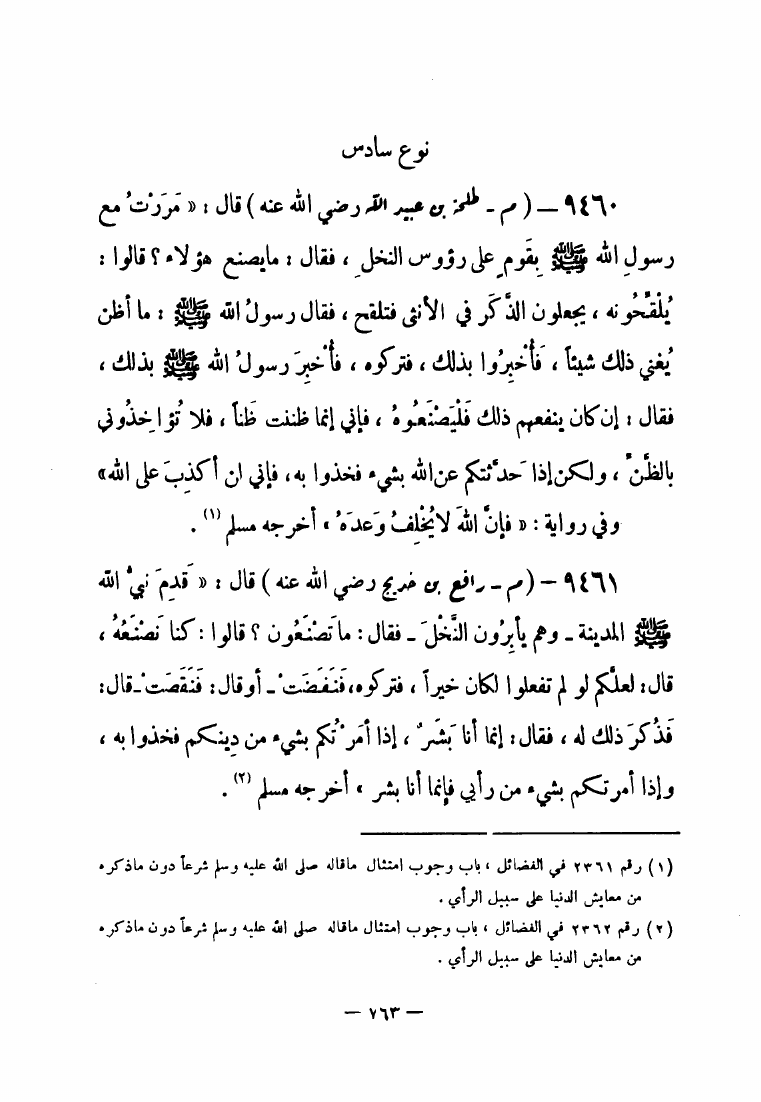 نوع سادس
٩٤٦٠ – ( م - طلحة بن عبيد الله رضي الله عنه ) قال : « مَرَرْتُ مع
رسولِ الله ﷺ بِقَومٍ على رؤوس النخلِ ، فقال : مايصنع هؤلاء ؟ قالوا :
يُلْقِّحُونه ، يجعلون الذَّكَر في الأنثى فتلقح ، فقال رسولُ الله ﷺ : ما أظن
يُغني ذلك شيئاً ، فَأُخْبِرُوا بذلك ، فتركوه ، فأُخْبِرَ رسولُ الله ﷺ بذلك ،
فقال : إن كان ينفعهم ذلك فَلْيَصْنَعُوهُ ، فإني إنما ظننت ظَناً ، فلا تُؤاخذُوني
بالظَّنِّ ، ولكن إذا حدَّثتكم عن الله بشيء فخذوا به ، فإني لن أكذِبَ على الله»
وفي رواية : « فإنَّ اللهَ لايُخْلِفُ وَعدَهُ » أخرجه مسلم (١) .
٩٤٦١ – (م - رافع بن خديج رضي الله عنه ) قال : « قَدِمَ نبيُّ الله
ﷺ المدينة - وهم يأبِرُون النَّخْلَ - فقال : ما تَصْنَعُون ؟ قالوا : كنا نَصْنَعُهُ ،
قال : لعلَّكم لو لم تفعلوا لكان خيراً ، فتركوه، فَنَفَضَتْ - أو قال : فَنَقَصَتْ - قال :
فَذُكرَ ذلك له ، فقال : إنما أنا بَشَرٌ ، إذا أمَرْتُكم بشيء من دِينكم فخذوا به ،
وإذا أمرتكم بشيء من رأيي فإنما أنا بشر » أخرجه مسلم (٢) .
(١) رقم ٢٣٦١ في الفضائل ، باب وجوب امتثال ماقاله صلى الله عليه وسلم شرعاً دون ماذكره
من معايش الدنيا على سبيل الرأي .
(٢) رقم ٢٣٦٢ في الفضائل ، باب وجوب امتثال ماقاله صلى الله عليه وسلم شرعاً دون ماذكره
من معايش الدنيا على سبيل الرأي .
— ٧٦٣ —